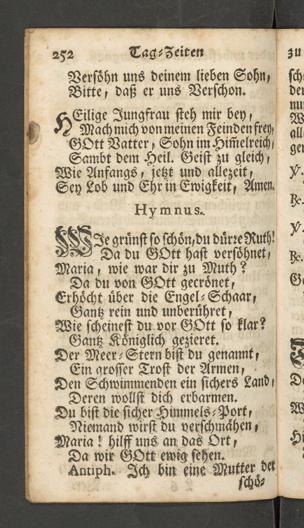 252 Tag-Zeiten
Versöhn uns deinem lieben Sohn,
Bitte, daß er uns Verschon.
HEilige Jungfrau steh mir bey,
Mach mich von meinen Feinden frey,
GOtt Vatter, Sohn im Him̃elreich,
Sambt dem Heil. Geist zu gleich,
Wie Anfangs, jetzt und allezeit,
Sey Lob und Ehr in Ewigkeit, Amen.
Hymnus.
WIe grünst so schön, du dürre Ruth!
Da du GOtt hast versöhnet,
Maria, wie war dir zu Muth?
Da du von GOtt gecrönet,
Erhöcht über die Engel-Schaar,
Gantz rein und unberühret,
Wie scheinest du vor GOtt so klar?
Gantz Königlich gezieret.
Der Meer-Stern bist du genannt,
Ein grosser Trost der Armen,
Den Schwimmenden ein sichers Land,
Deren wollst dich erbarmen.
Du bist die sicher Himmels-Port,
Niemand wirst du verschmähen,
Maria! hilff uns an das Ort,
Da wir GOtt ewig sehen.
Antiph. Ich bin eine Mutter der
schö-